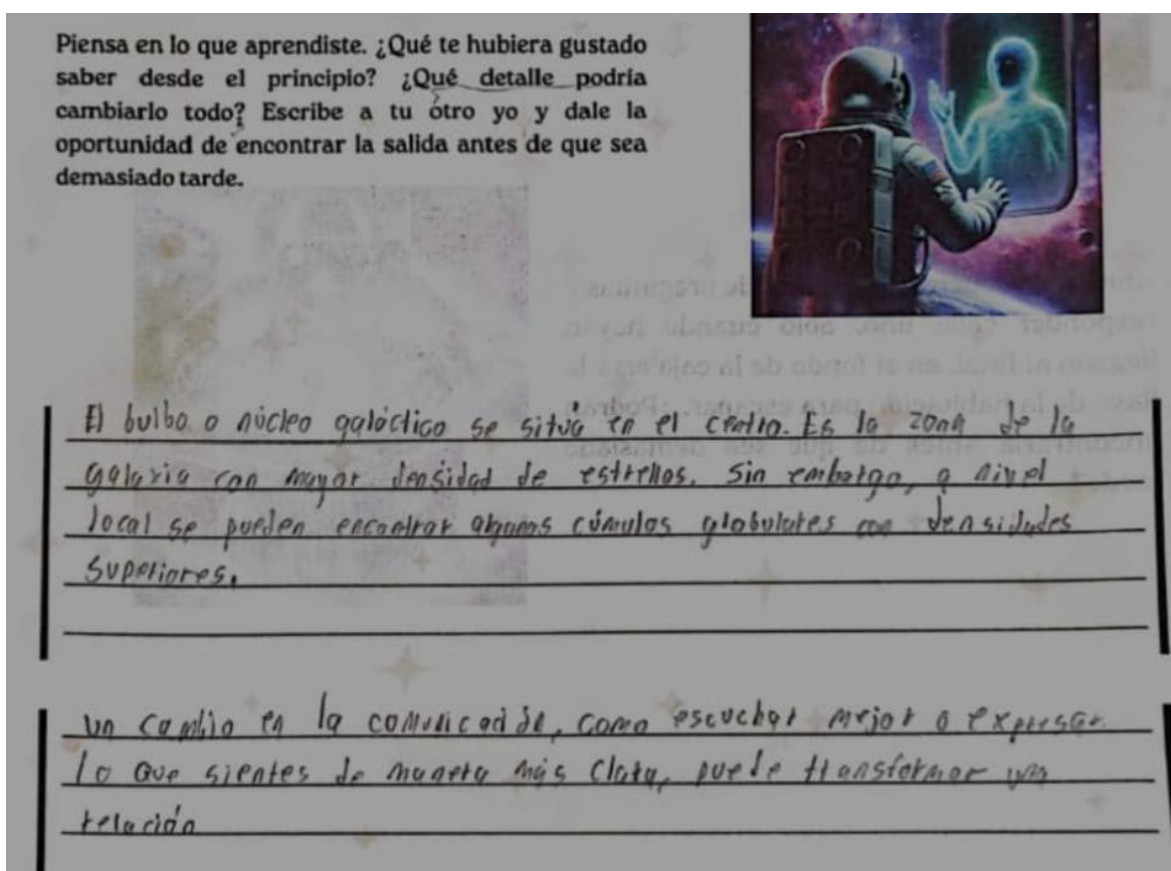 Piensa en lo que aprendiste. ¿Qué te hubiera gustado
saber desde el principio? ¿Qué detalle podría
cambiarlo todo? Escribe a tu otro yo y dale la
oportunidad de encontrar la salida antes de que sea
demasiado tarde.
El bulbo o núcleo galáctico se situá en el centro. Es la zona de la
galaxia con mayor densidad de estrellas. Sin embargo, a nivel
local se pueden encontrar algunos cúmulos globulares con densidades
superiores.
un cambio en la comunicación, como escuchar mejor o expresar
lo que sientes de manera más clara, puede transformar una
relación